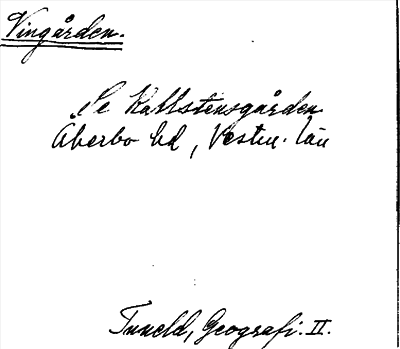 Vingården.
Se Kallstensgården
Åkerbo hd, Vestm. län
Tuneld, Geografi. II.